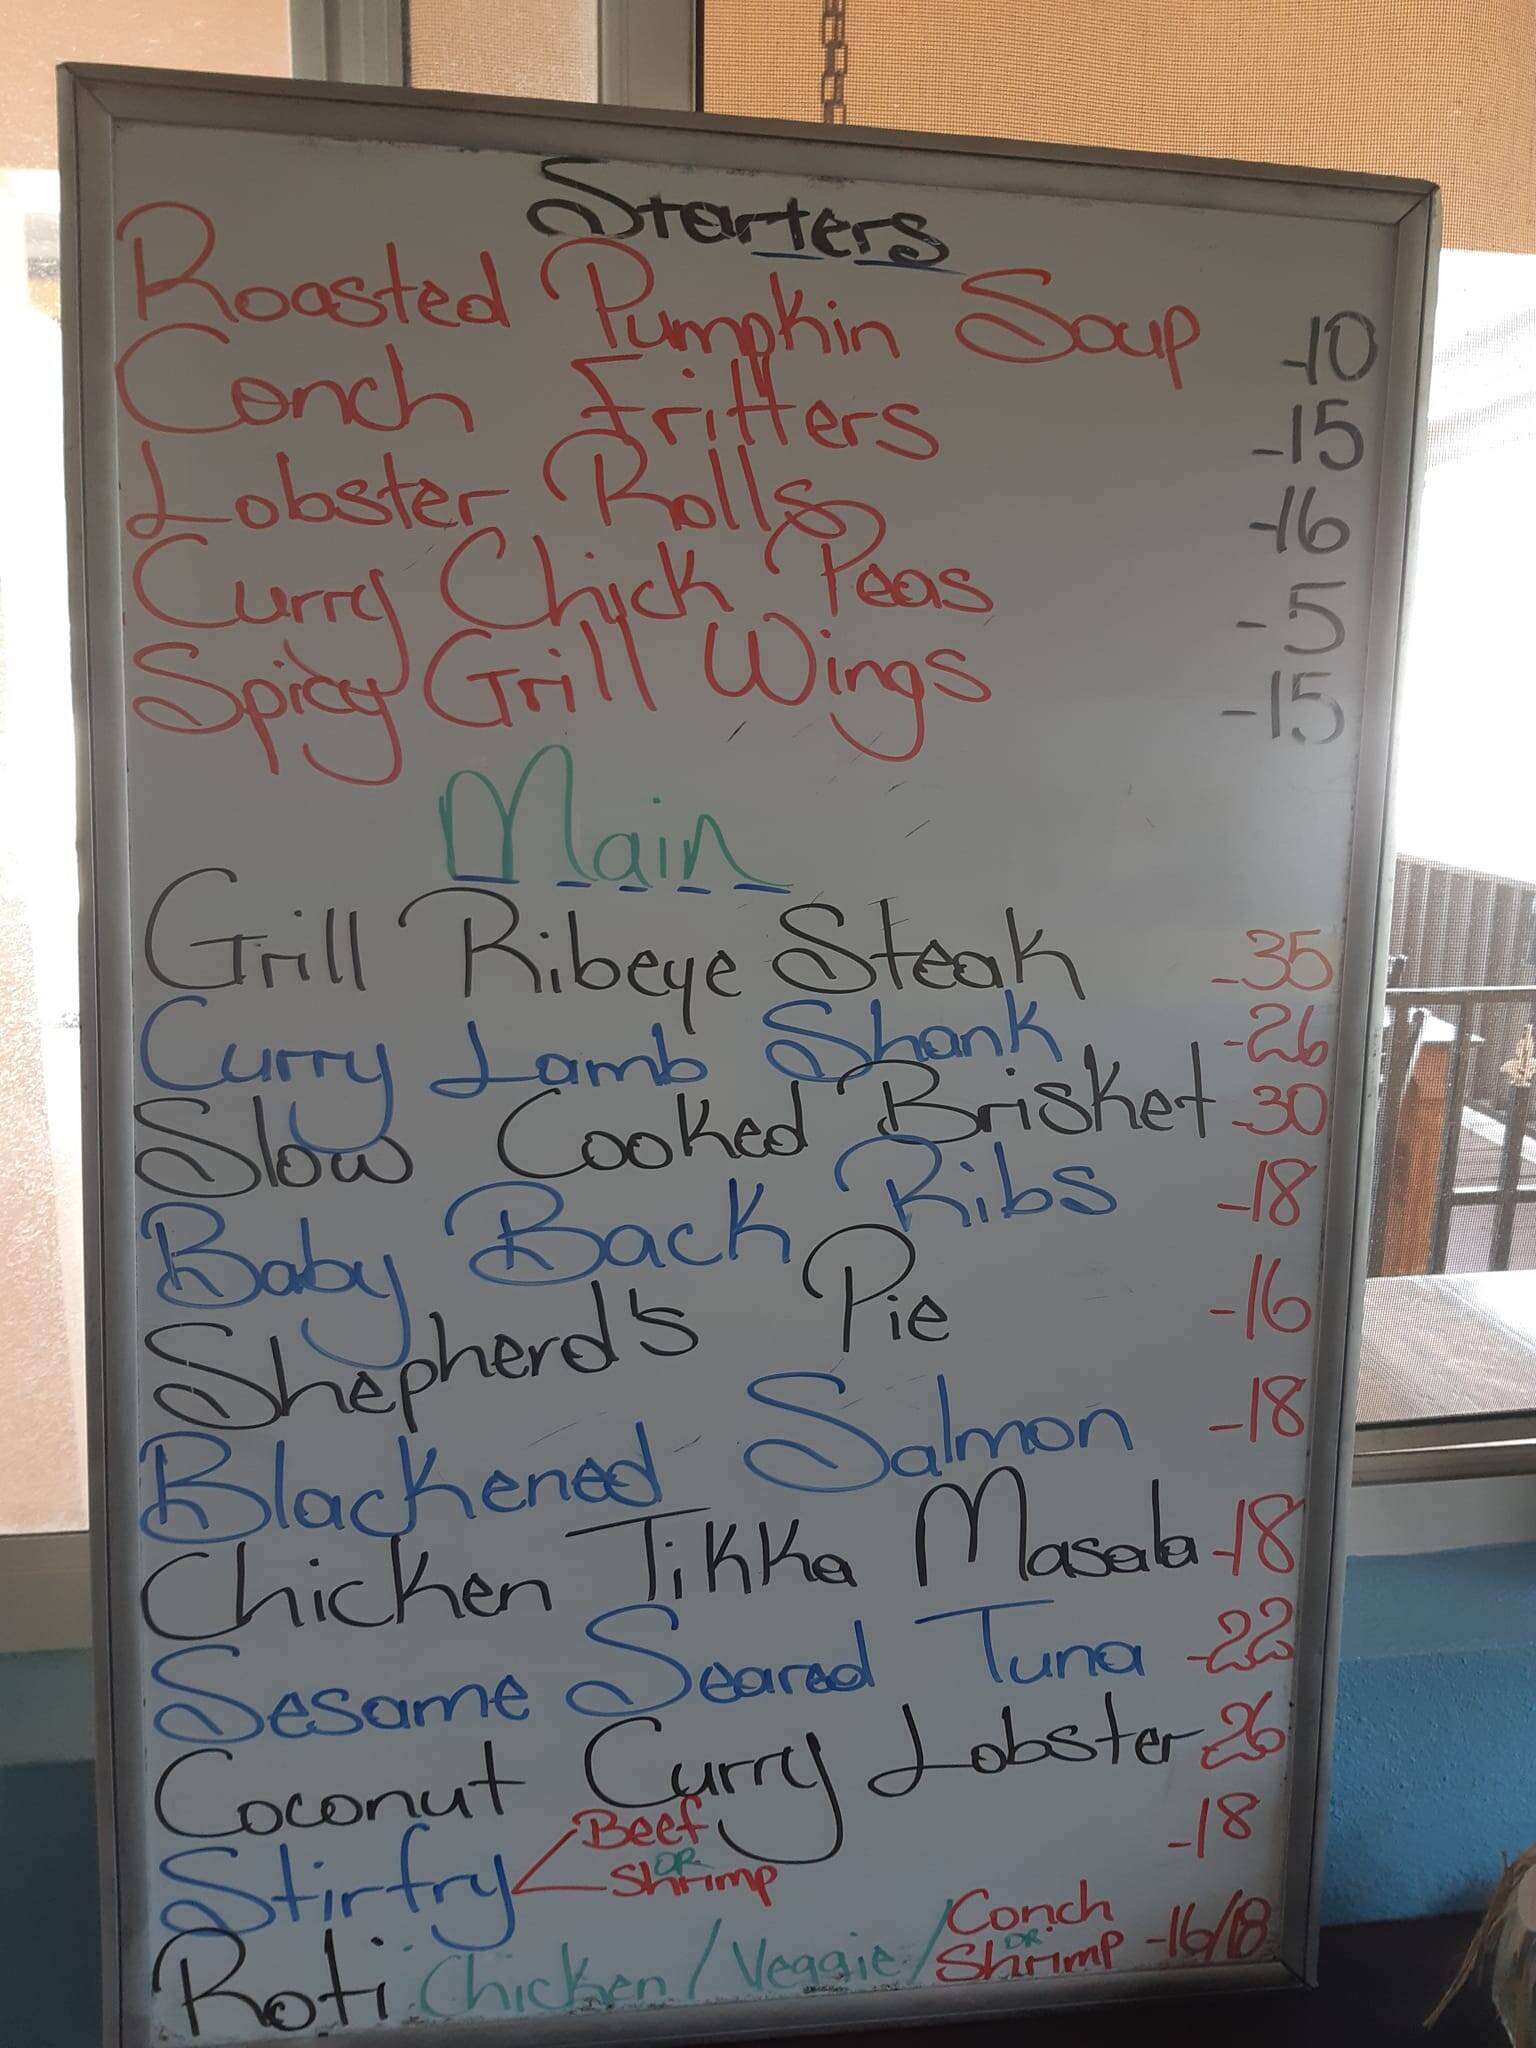 Starters
Roasted Pumpkin Soup -10
Conch Fritters -15
Lobster Rolls -16
Curry Chick Peas -5
Spicy Grill Wings -15
Main
Grill Ribeye Steak -35
Curry Lamb Shank -26
Slow Cooked Brisket -30
Baby Back Ribs -18
Shepherd's Pie -16
Blackened Salmon -18
Chicken Tikka Masala -18
Sesame Seared Tuna -22
Coconut Curry Lobster -26
Stirfry Beef OR Shrimp -18
Roti Chicken / Veggie / Conch OR Shrimp -16/18